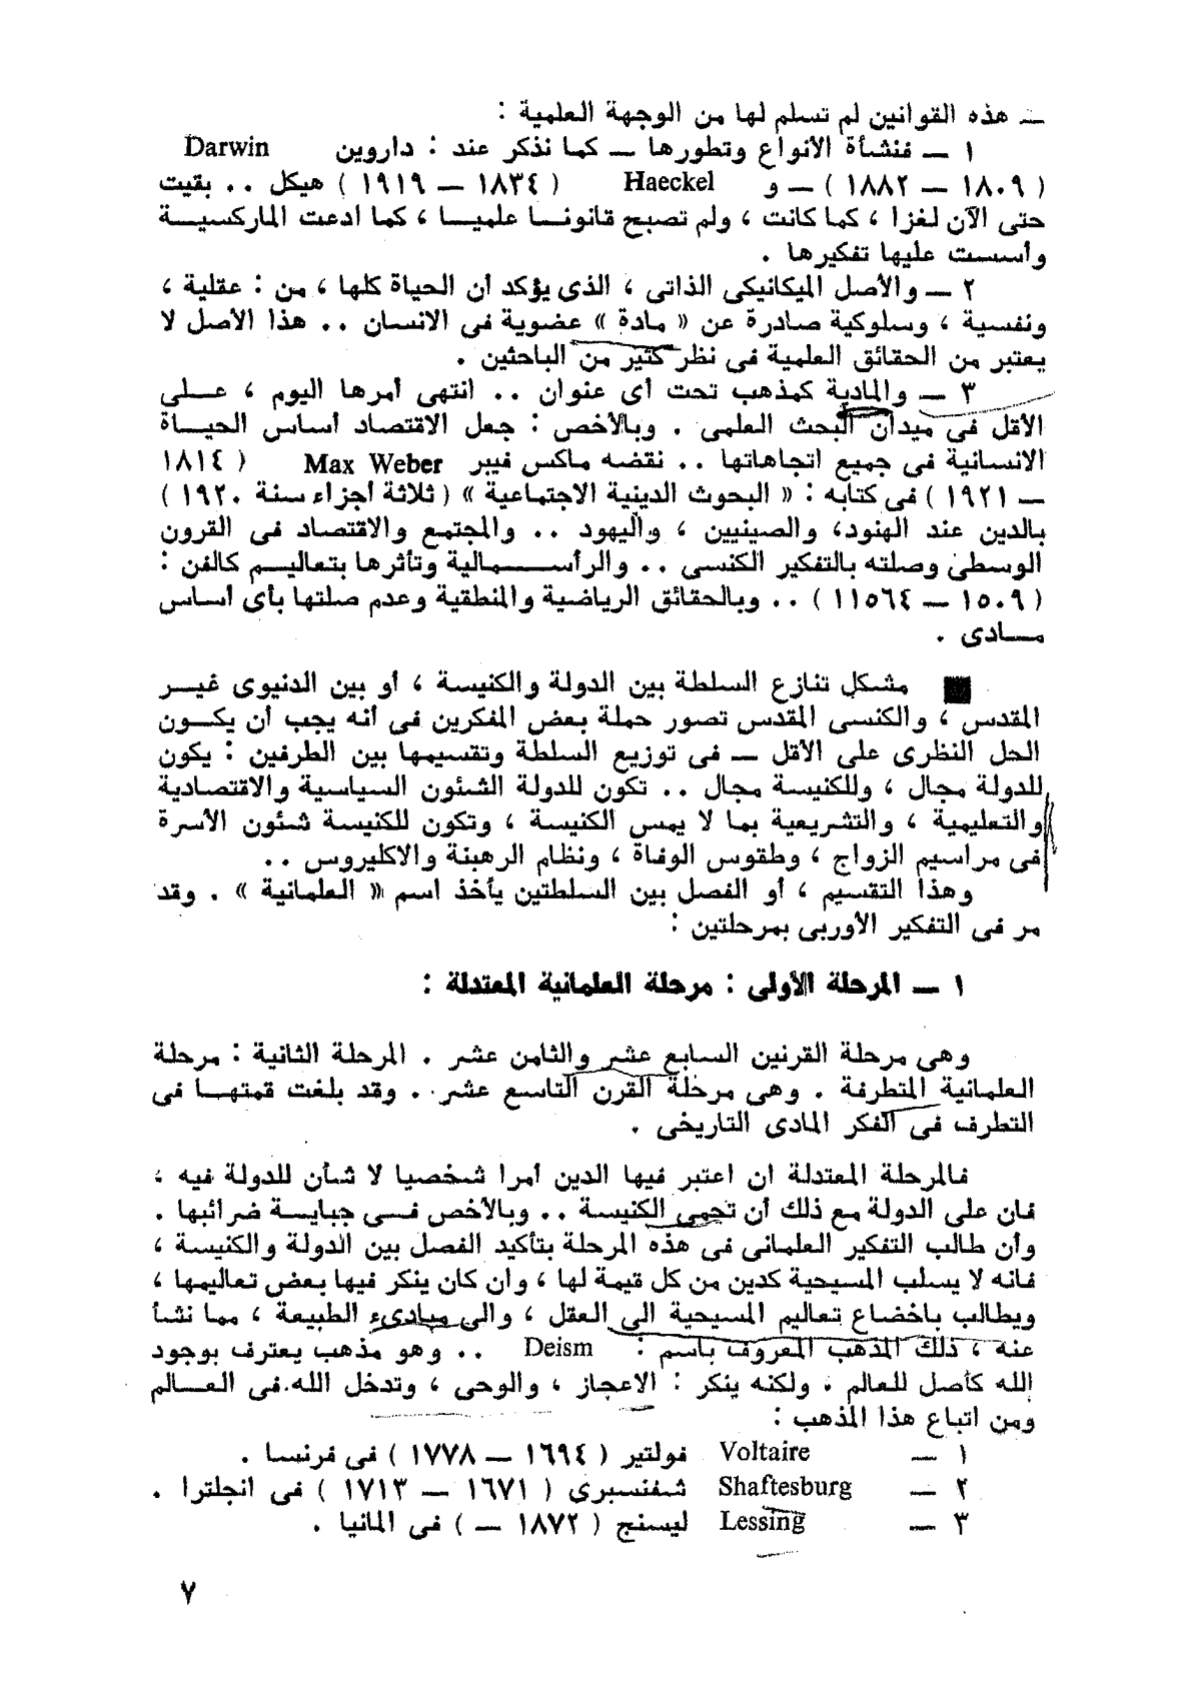 — هذه القوانين لم تسلم لها من الوجهة العلمية :
١ — فنشأة الأنواع وتطورها — كما نذكر عند : داروين Darwin
( ١٨٠٩ — ١٨٨٢ ) — و Haeckel ( ١٨٣٤ — ١٩١٩ ) هيكل .. بقيت
حتى الآن لغزا ، كما كانت ، ولم تصبح قانونا علميا ، كما ادعت الماركسية
وأسست عليها تفكيرها .
٢ — والأصل الميكانيكى الذاتى ، الذى يؤكد أن الحياة كلها ، من : عقلية ،
ونفسية ، وسلوكية صادرة عن « مادة » عضوية فى الانسان .. هذا الأصل لا
يعتبر من الحقائق العلمية فى نظر كثير من الباحثين .
٣ — والمادية كمذهب تحت أى عنوان .. انتهى أمرها اليوم ، على
الأقل فى ميدان البحث العلمى . وبالأخص : جعل الاقتصاد أساس الحياة
الانسانية فى جميع اتجاهاتها .. نقضه ماكس فيبر Max Weber ( ١٨١٤
— ١٩٢١ ) فى كتابه : « البحوث الدينية الاجتماعية » ( ثلاثة أجزاء سنة ١٩٢٠ )
بالدين عند الهنود، والصينيين ، واليهود .. والمجتمع والاقتصاد فى القرون
الوسطى وصلته بالتفكير الكنسى .. والرأسمالية وتأثرها بتعاليم كالفن :
( ١٥٠٩ — ١١٥٦٤ ) .. وبالحقائق الرياضية والمنطقية وعدم صلتها بأى أساس
مادى .
■ مشكل تنازع السلطة بين الدولة والكنيسة ، أو بين الدنيوى غير
المقدس ، والكنسى المقدس تصور حملة بعض المفكرين فى أنه يجب أن يكون
الحل النظرى على الأقل — فى توزيع السلطة وتقسيمها بين الطرفين : يكون
للدولة مجال ، وللكنيسة مجال .. تكون للدولة الشئون السياسية والاقتصادية
والتعليمية ، والتشريعية بما لا يمس الكنيسة ، وتكون للكنيسة شئون الأسرة
فى مراسيم الزواج ، وطقوس الوفاة ، ونظام الرهبنة والاكليروس ..
وهذا التقسيم ، أو الفصل بين السلطتين يأخذ اسم « العلمانية » . وقد
مر فى التفكير الأوربى بمرحلتين :
١ — المرحلة الأولى : مرحلة العلمانية المعتدلة :
وهى مرحلة القرنين السابع عشر والثامن عشر . المرحلة الثانية : مرحلة
العلمانية المتطرفة . وهى مرحلة القرن التاسع عشر . وقد بلغت قمتها فى
التطرف فى الفكر المادى التاريخى .
فالمرحلة المعتدلة ان اعتبر فيها الدين أمرا شخصيا لا شأن للدولة فيه ،
فان على الدولة مع ذلك أن تحمى الكنيسة .. وبالأخص فى جباية ضرائبها .
وأن طالب التفكير العلمانى فى هذه المرحلة بتأكيد الفصل بين الدولة والكنيسة ،
فانه لا يسلب المسيحية كدين من كل قيمة لها ، وان كان ينكر فيها بعض تعاليمها ،
ويطالب باخضاع تعاليم المسيحية الى العقل ، والى مبادىء الطبيعة ، مما نشأ
عنه ، ذلك المذهب المعروف باسم : Deism .. وهو مذهب يعترف بوجود
الله كأصل للعالم . ولكنه ينكر : الاعجاز ، والوحى ، وتدخل الله فى العالم
ومن اتباع هذا المذهب :
١ — Voltaire فولتير ( ١٦٩٤ — ١٧٧٨ ) فى فرنسا .
٢ — Shaftesburg شفنسبرى ( ١٦٧١ — ١٧١٣ ) فى انجلترا .
٣ — Lessing ليسنج ( ١٨٧٢ — ) فى المانيا .
٧